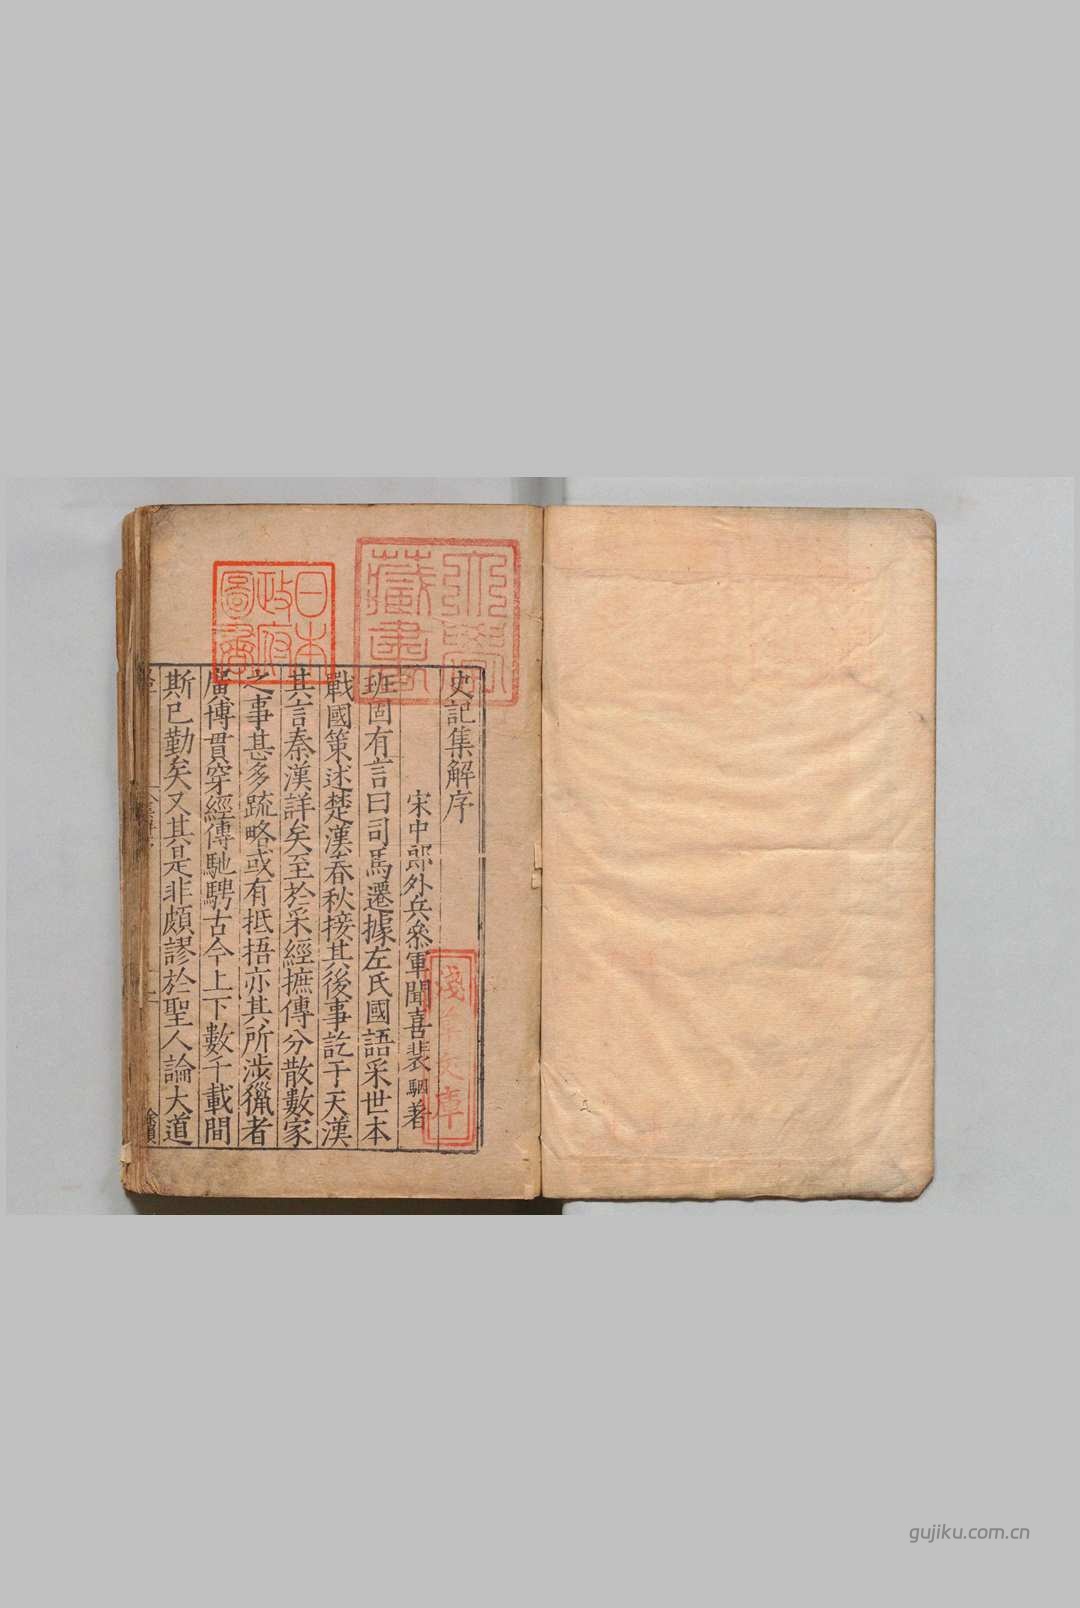 史記集解序
宋中郎外兵參軍聞喜裴駰著
班固有言曰司馬遷據左氏國語采世本
戰國策述楚漢春秋接其後事訖于天漢
其言秦漢詳矣至於采經摭傳分散數家
之事甚多疏略或有抵捂亦其所涉獵者
廣博貫穿經傳馳騁古今上下數千載間
斯已勤矣又其是非頗謬於聖人論大道
日本
政府
圖書
淺草文庫
gujiku.com.cn